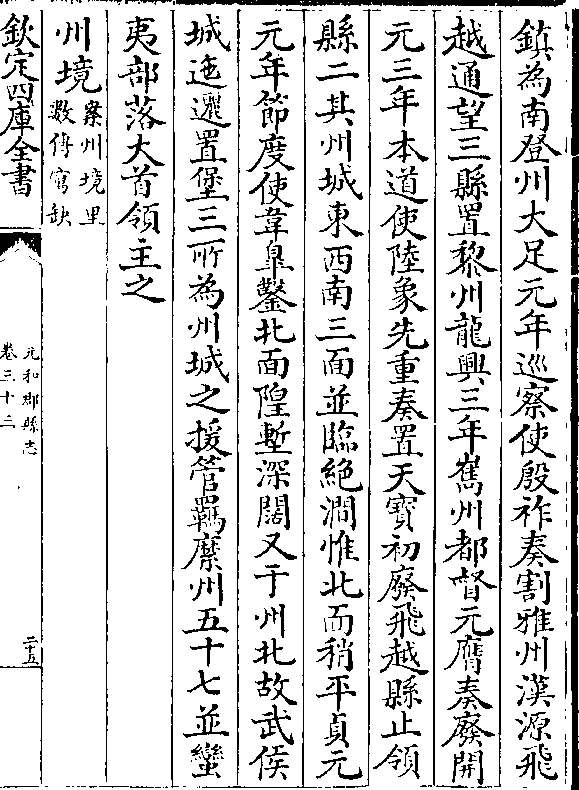 鎮為南登州大足元年巡察使殷祚奏割雅州漢源飛
越通望三縣置黎州龍興三年雟州都督元膺奏廢開
元三年本道使陸象先重奏置天寶初廢飛越縣止領
縣二其州城東西南三面並臨絶澗惟北而稍平貞元
元年節度使韋臯鑿北面隍塹深闊又于州北故武侯
城迤邐置堡三所為州城之援管羈縻州五十七並蠻
夷部落大首領主之
州境案州境里數傳寫缺
欽定四庫全書
元和郡縣志
卷三十二
二十五